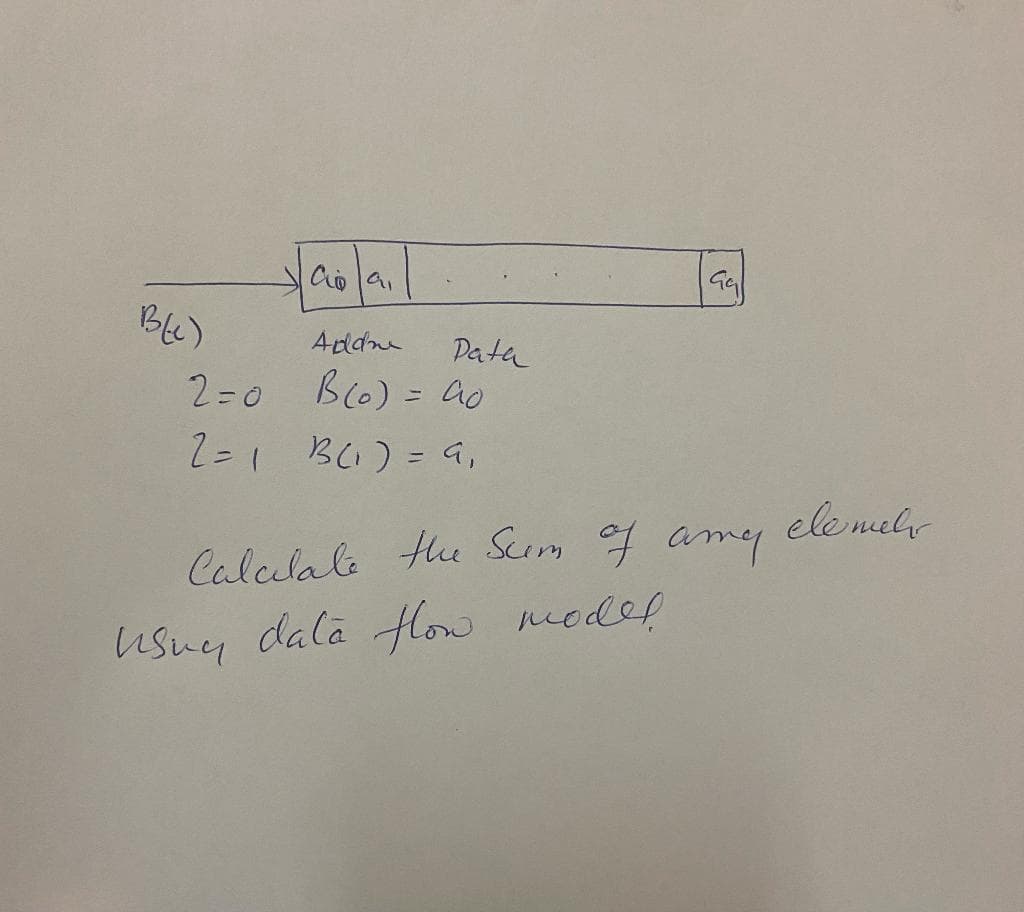 a0 a1 . . . a9
B(i)
Addre Data
i=0 B(0) = a0
i=1 B(1) = a1
Calculate the Sum of array elements
using data flow model.